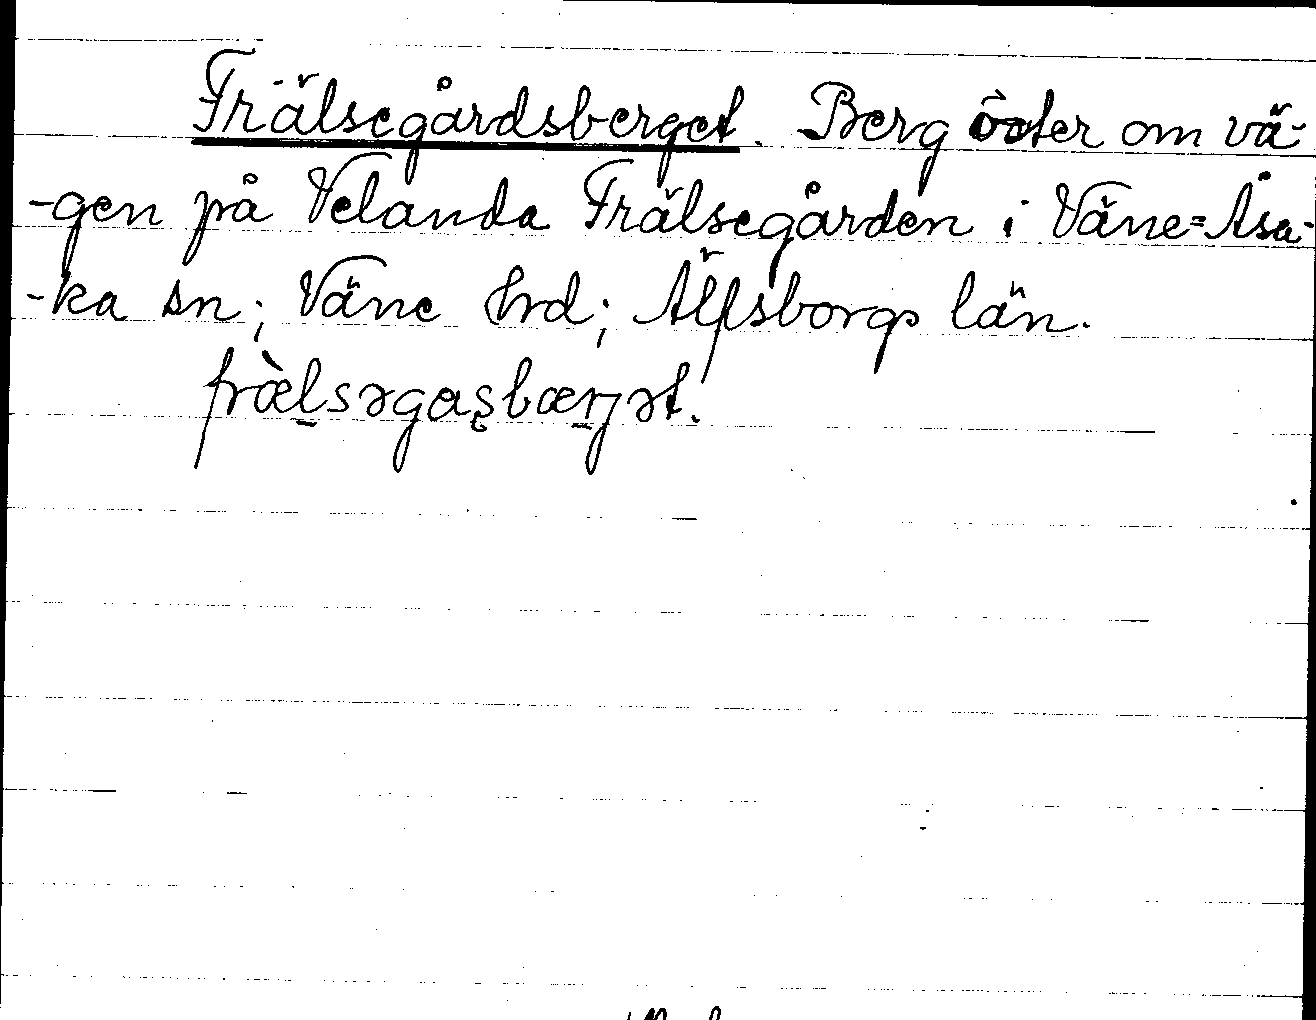 Frälsegårdsberget. Berg öster om vä-
-gen på Velanda Frälsegården i Väne=Åsa-
-ka sn; Väne hrd; Älfsborgs län.
fræ̀lsəgaşbærjət.